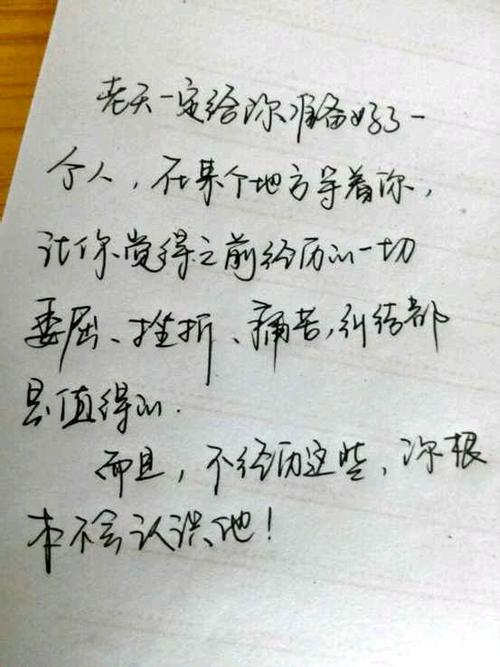 老天一定给你准备好了一
个人，在某个地方等着你，
让你觉得之前经历的一切
委屈、挫折、痛苦，纠结都
是值得的.
而且，不经历这些，你根
本不会认识他！